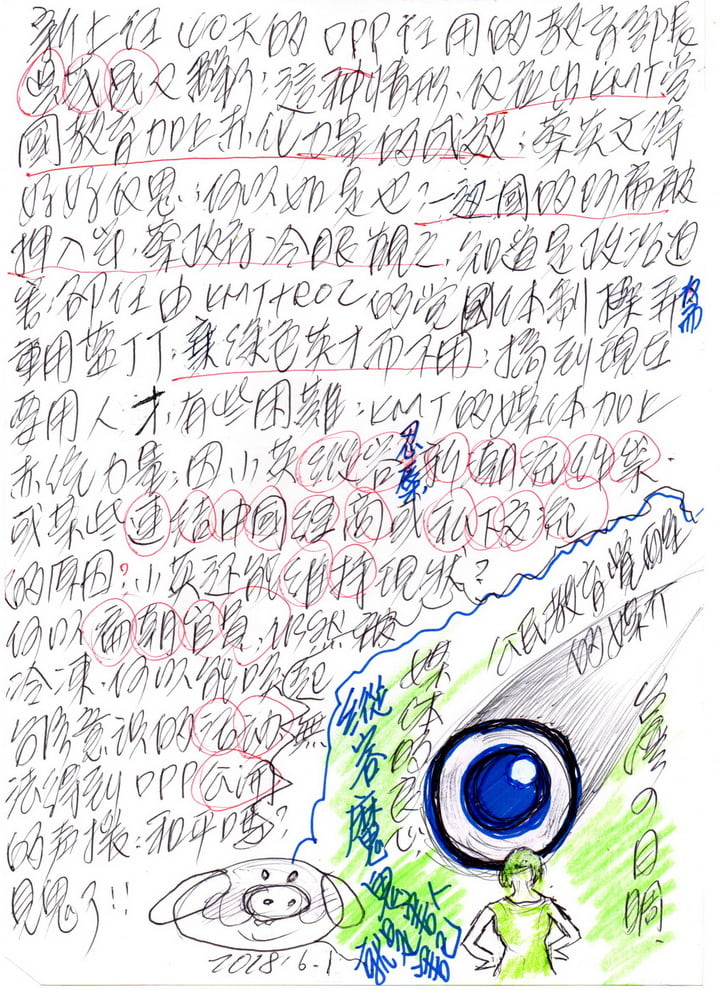 新上任40天的DPP任用的教育部長
吳茂昆又辭了:這種情形,仅在出KMT党
國教育加上赤化力量的成效;蔡英文得
好好仅思:何以如是也?一边一國的防扁被
押入牢,蔡政府冷眼觀之,知道是政治迫
害,卻任由KMT+ROC的党國体制操弄
專用藍丁丁:棄綠色英才而不用:搞到現在 為而
要用人才,有些困難:KMT的媒体加上
赤化力量:因小英縱容新朝流作祟, 忍
或某些連結中國經商或私下交流
的原因?小英还能維持現狀?
何以扁朝官員,仍然被
冷凍,何以能喚起
台灣意识的活动無
法得到DPP公開
的声援:和平嗎?
見鬼了!!
2018.6.1
公民教育覺醒
的媒介
台灣の目睭
媒体的良心
縱容魔鬼
就是